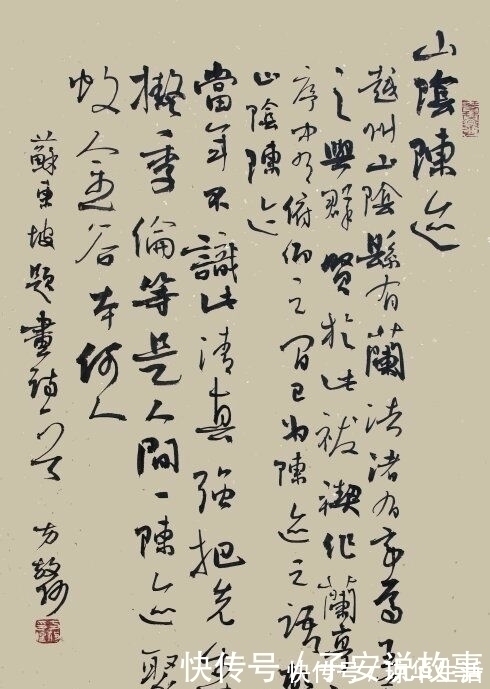 山陰陳迹
越州山陰縣有蘭渚渚有亭焉王
之與群賢於此祓禊作蘭亭
序中有俯仰之間已為陳迹之語
山陰陳迹
當年不識此清真強把先生
擬季倫等是人間一陳迹聚
蚊金谷本何人
蘇東坡題畫詩一首
快传号 / 子安说故事
快传号